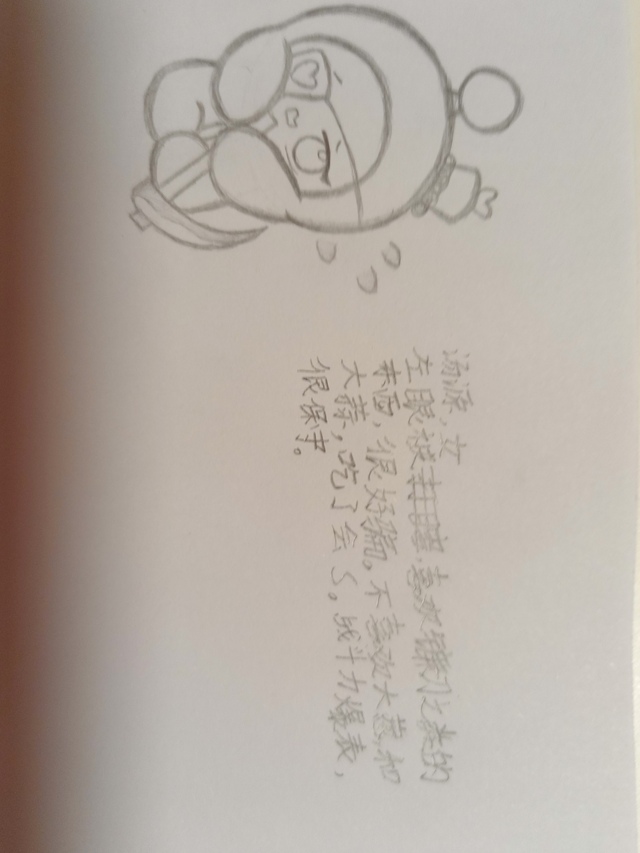 汤源，女
左眼被瞎，喜欢镰刀之类的
东西，很好骗。不喜欢大葱和
大蒜，吃了会s。战斗力爆表，
很保守。